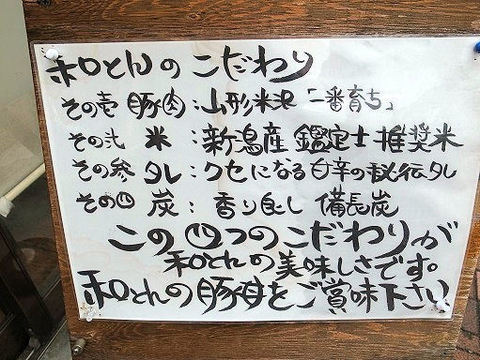 和とんのこだわり
その壱 豚肉:山形米沢「一番育ち」
その弐 米:新潟産 鑑定士推奨米
その参 タレ:クセになる甘辛の秘伝タレ
その四 炭:香り良し 備長炭
この四つのこだわりが
和とんの美味しさです。
和とんの豚丼をご賞味下さい